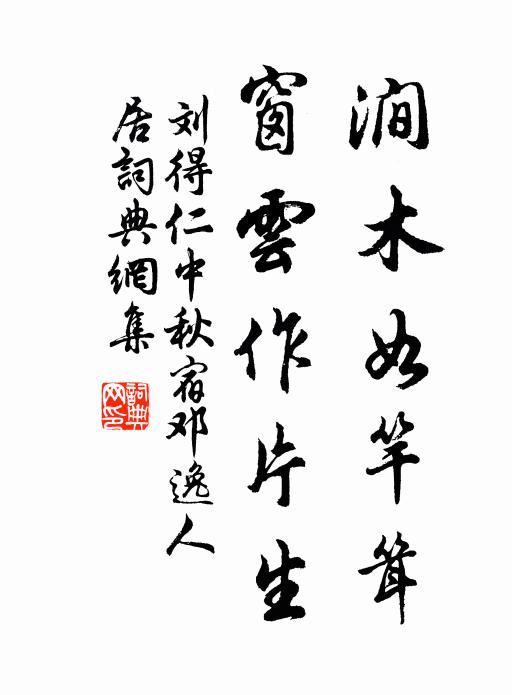 澗木如竿聳
窗雲作片生
刘得仁中秋宿邓逸人
居詞典網集
詞典网印